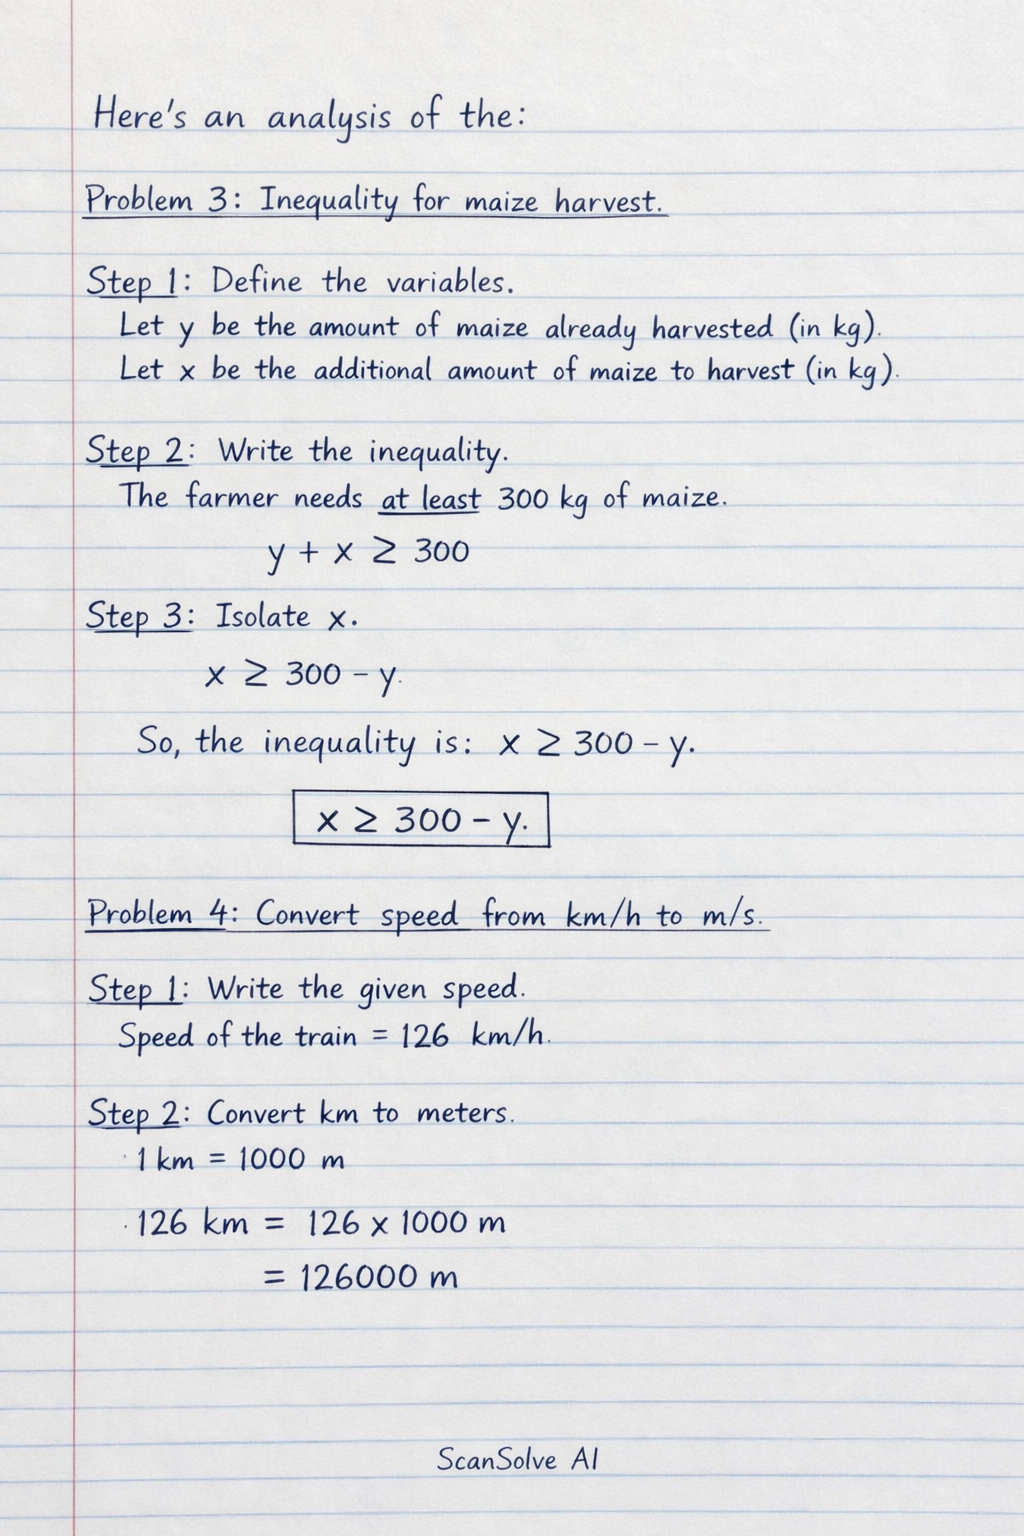 Here's an analysis of the:
Problem 3: Inequality for maize harvest.
Step 1: Define the variables.
Let y be the amount of maize already harvested (in kg).
Let x be the additional amount of maize to harvest (in kg).
Step 2: Write the inequality.
The farmer needs at least 300 kg of maize.
y + x ≥ 300
Step 3: Isolate x.
x ≥ 300 - y.
So, the inequality is: x ≥ 300 - y.
x ≥ 300 - y.
Problem 4: Convert speed from km/h to m/s.
Step 1: Write the given speed.
Speed of the train = 126 km/h.
Step 2: Convert km to meters.
· 1 km = 1000 m
· 126 km = 126 x 1000 m
= 126000 m
ScanSolve AI